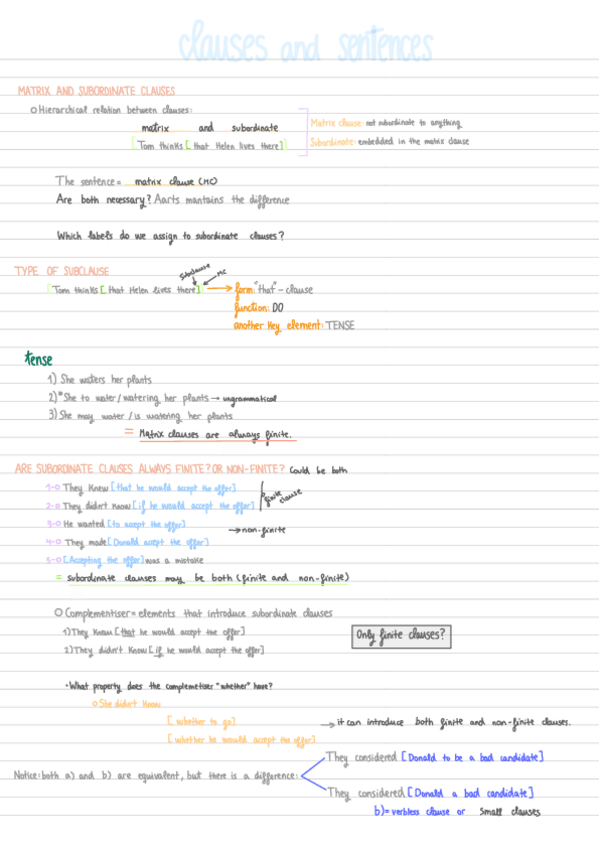 clauses and sentences
MATRIX AND SUBORDINATE CLAUSES
O Hierarchical relation between clauses:
matrix and subordinate
[Tom thinks [that Helen lives there]]
Matrix clause: not subordinate to anything
Subordinate: embedded in the matrix clause
The sentence = matrix clause (MC)
Are both necessary? Aarts mantains the difference
Which labels do we assign to subordinate clauses?
TYPE OF SUBCLAUSE
Subclause MC
[Tom thinks [that Helen lives there]] → form: "that" - clause
function: DO
another key element: TENSE
tense
1) She waters her plants
2)*She to water/watering her plants → ungrammatical
3) She may water / is watering her plants
= Matrix clauses are always finite.
ARE SUBORDINATE CLAUSES ALWAYS FINITE? OR NON-FINITE? Could be both
1-O They knew [that he would accept the offer]
2-O They didn't know [if he would accept the offer]
finite clause
3-O He wanted [to accept the offer]
→ non-finite
4-O They made [Donald accept the offer]
5-O [Accepting the offer] was a mistake
= subordinate clauses may be both (finite and non-finite)
O Complementiser = elements that introduce subordinate clauses
1) They know [that he would accept the offer]
2) They didn't know [if he would accept the offer]
Only finite clauses?
• What property does the complemetiser "whether" have?
O She didn't know
[whether to go]
→ it can introduce both finite and non-finite clauses.
[whether he would accept the offer]
They considered [Donald to be a bad candidate]
Notice: both a) and b) are equivalent, but there is a difference:
They considered [Donald a bad candidate]
b) = verbless clause or Small clauses